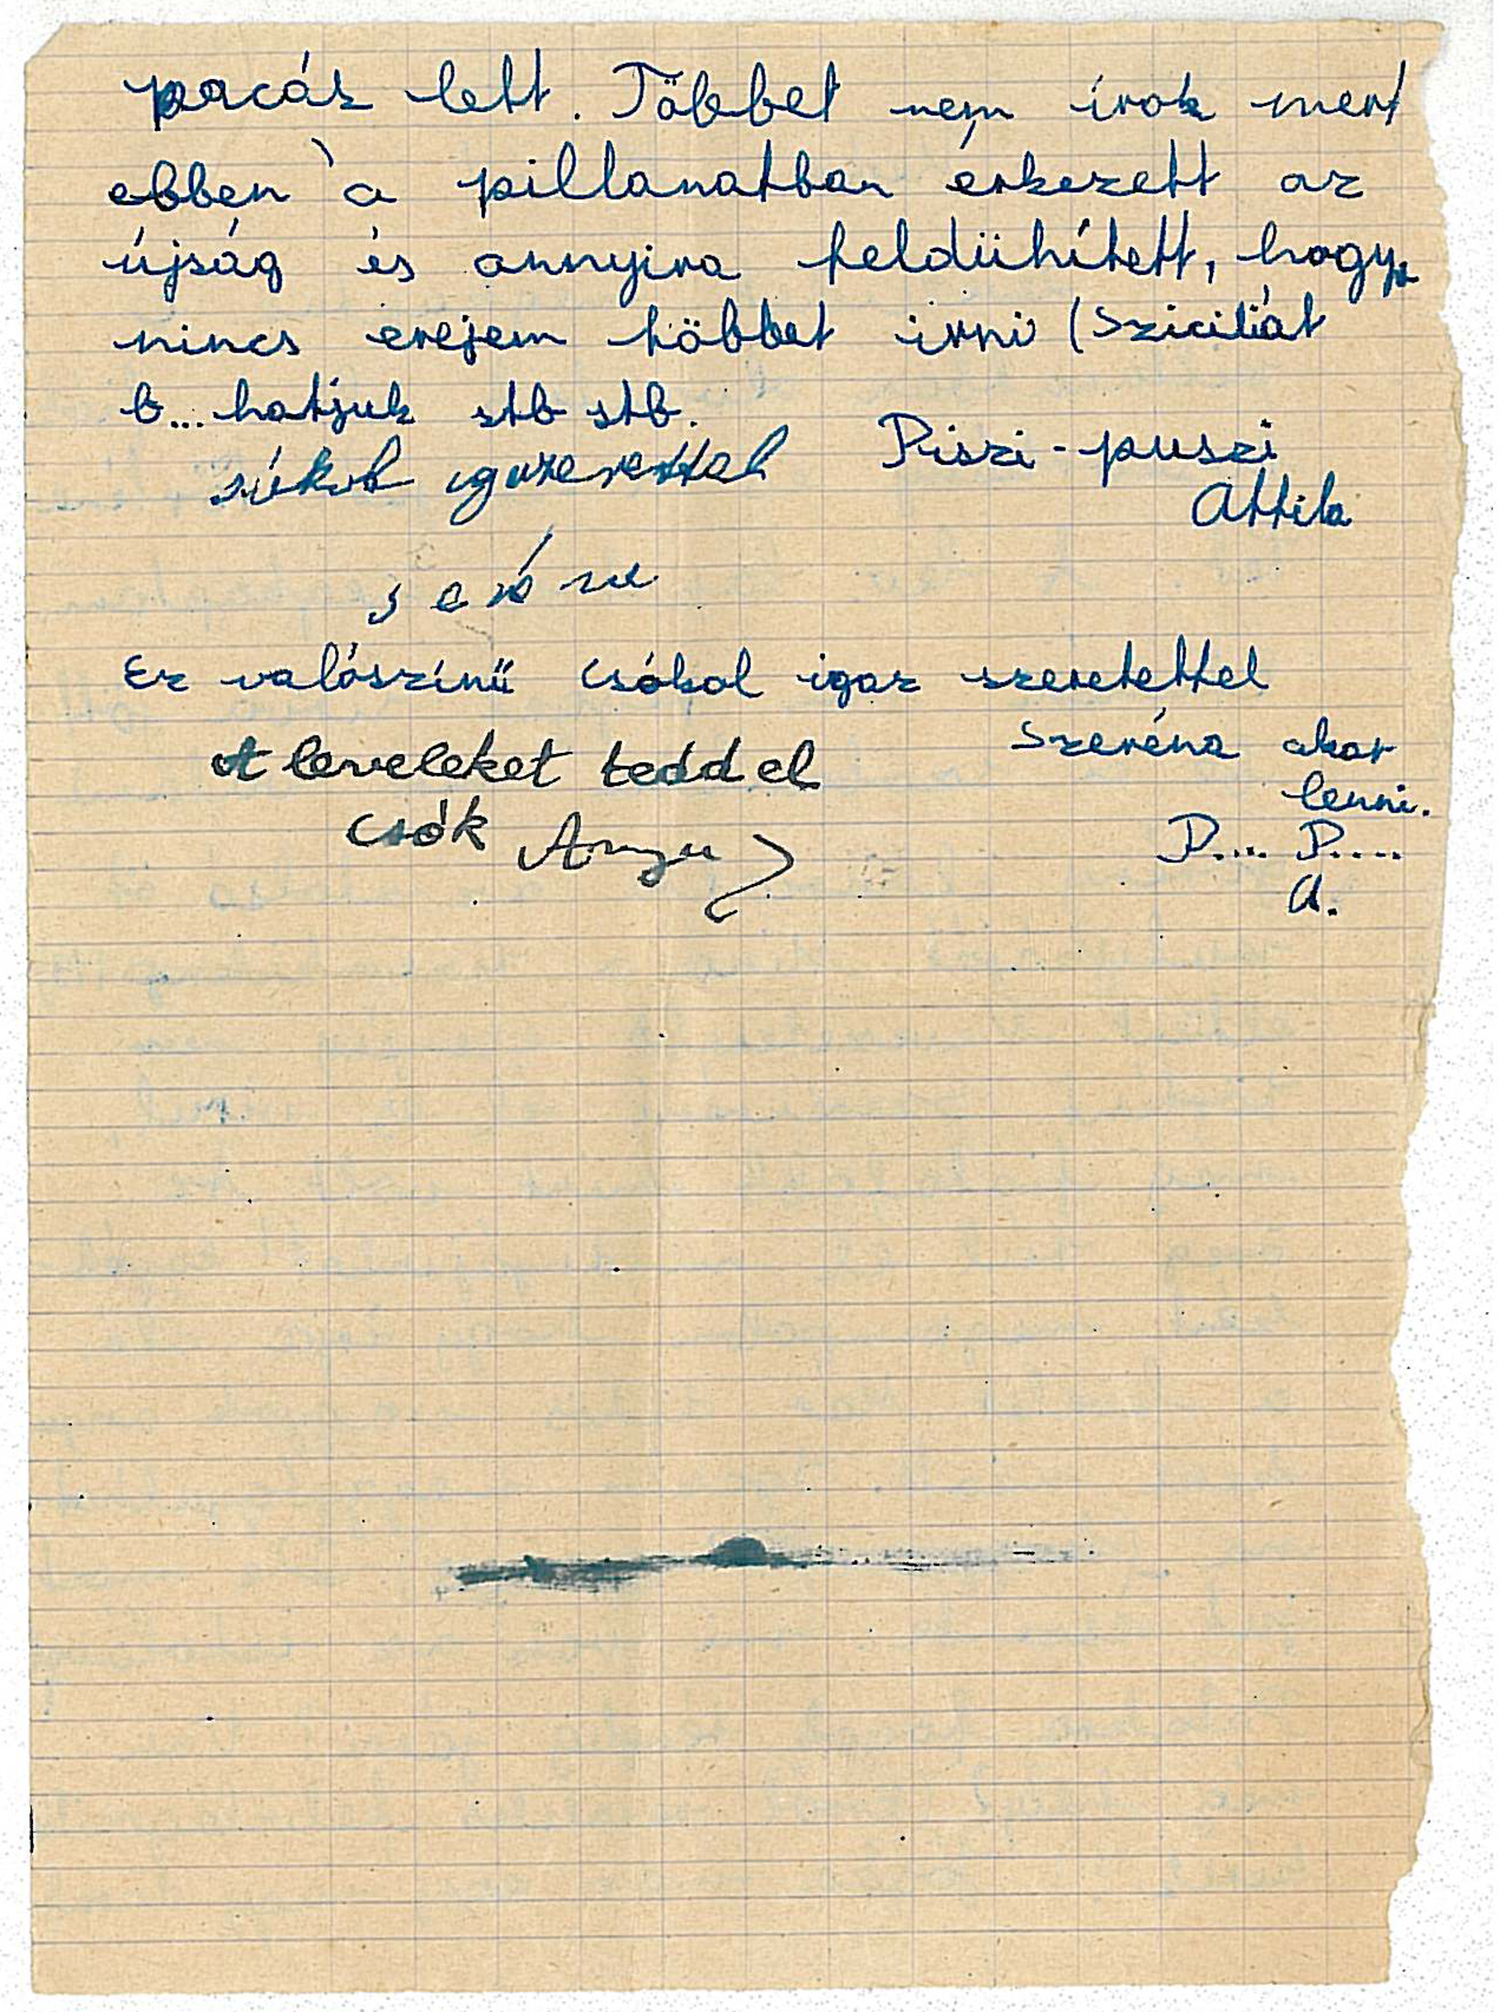 pacás lett. Többet nem írok mert
ebben a pillanatban érkezett az
újság és annyira feldühített, hogy
nincs erejem többet irni (Szicíliát
b... hatjuk stb stb.
Piszi-puszi
Attila
Ez valószínű csókol igaz szeretettel
Szeréna akar
lenni.
P.... P.....
A.
A leveleket tedd el
Csók Anyu